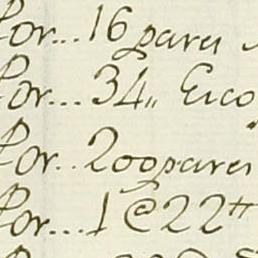 Por... 16 pares
Por... 34,, Eico
Por.. 200 pares
Por... 1 @ 22 tt